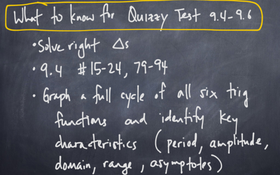 What to know for Quizzy Test 9.4-9.6
• Solve right Δs
• 9.4 #15-24, 79-94
• Graph a full cycle of all six trig
functions and identify key
characteristics (period, amplitude,
domain, range, asymptotes)